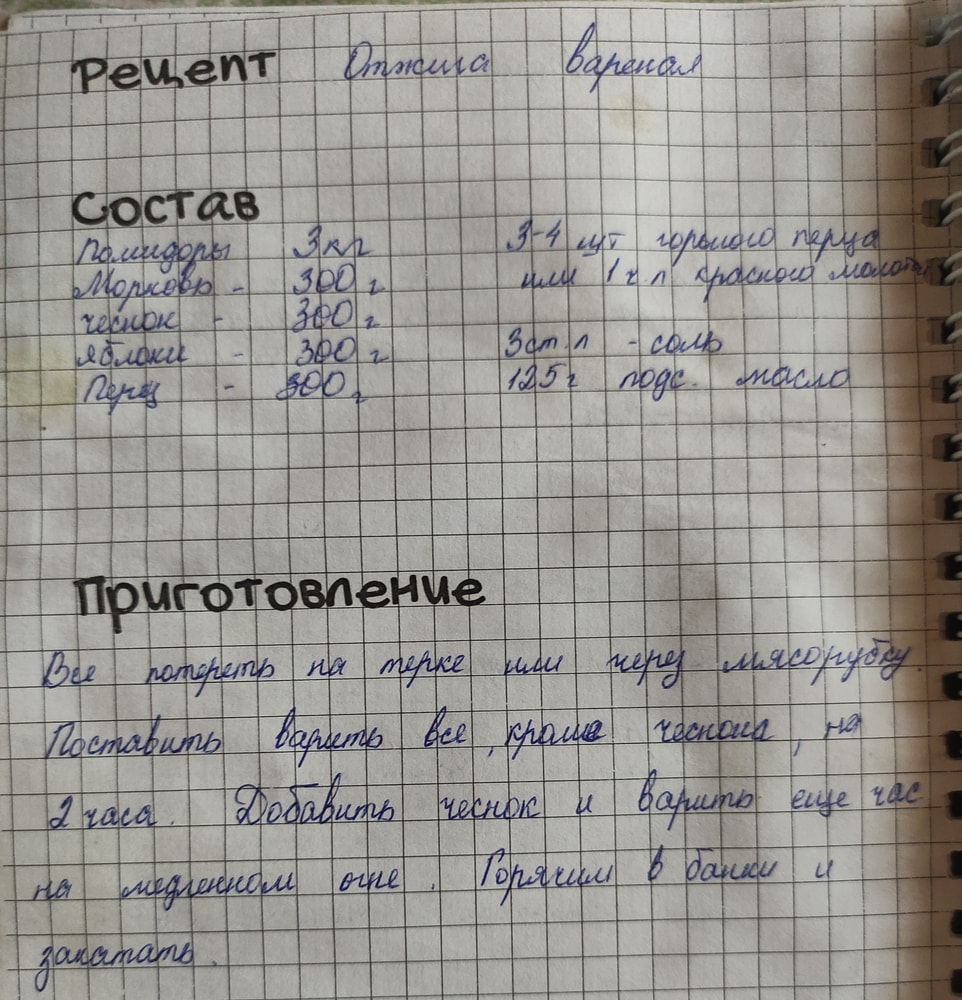 Рецепт Отжига вареная
Состав
Помидоры 3кг
Морковь - 300 г
чеснок - 300 г
яблоки - 300 г
Перец - 300 г
3-4 шт горького перца
или 1 ч.л красного
3ст.л - соль
125 г подс. масло
Приготовление
Все потереть на терке или через мясорубку.
Поставить варить все, кроме чеснока, на
2 часа. Добавить чеснок и варить еще час
на медленном огне. Горячим в банки и
закатать.